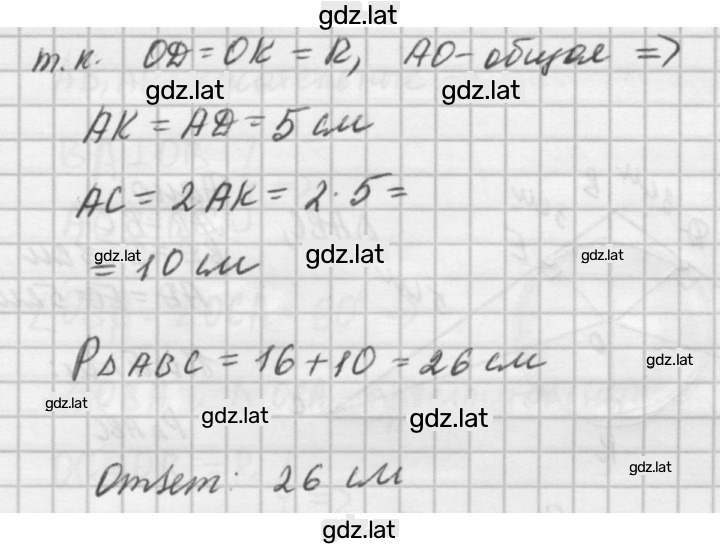 gdz.lat
т.к. OD = OK = R, AO - общая =>
gdz.lat gdz.lat
AK = AD = 5 см
AC = 2AK = 2·5 =
gdz.lat gdz.lat gdz.lat
= 10 см
P△ABC = 16 + 10 = 26 см
gdz.lat
gdz.lat gdz.lat gdz.lat
Ответ: 26 см
gdz.lat
gdz.lat